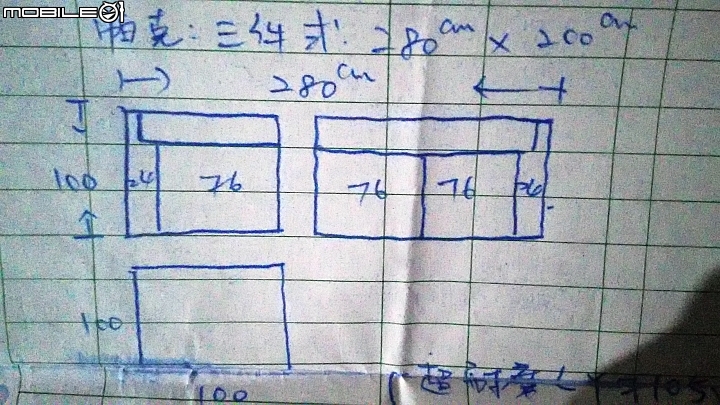 MOBILE01
帕克：三件式：280cm x 200cm
280cm
100
24 76
76 76 26
100
100